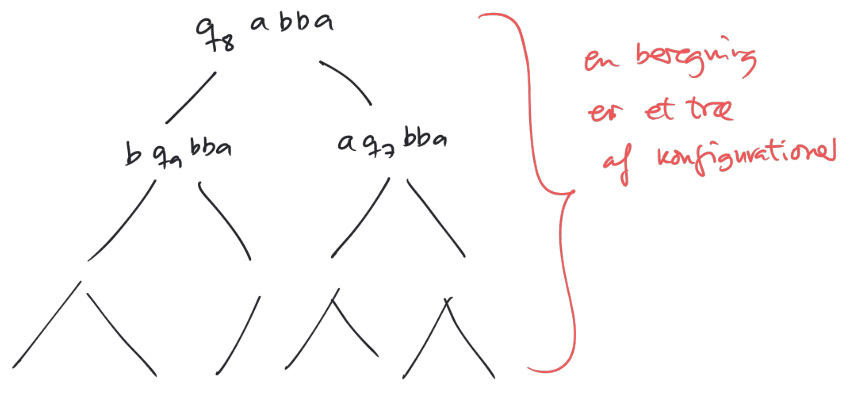 q8 abba
b q9 bba
a q7 bba
en beregning
er et træ
af konfigurationer